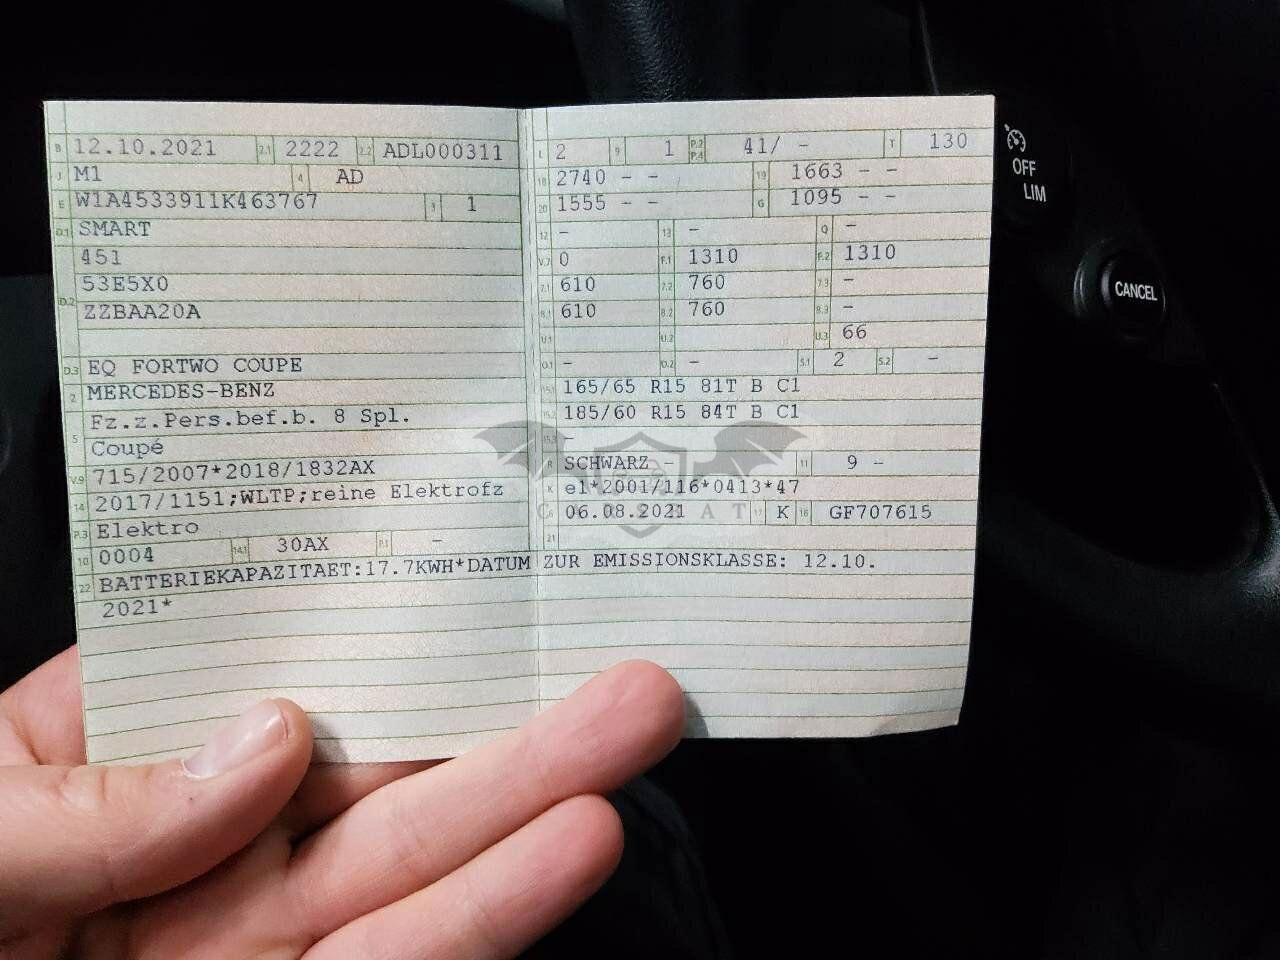 B 12.10.2021 2.1 2222 2.2 ADL000311
J M1 4 AD
E W1A4533911K463767 3 1
D.1 SMART
451
53E5X0
D.2 ZZBAA20A
D.3 EQ FORTWO COUPE
2 MERCEDES-BENZ
Fz.z.Pers.bef.b. 8 Spl.
5 Coupé
V.9 715/2007*2018/1832AX
14 2017/1151;WLTP;reine Elektrofz
P.3 Elektro
10 0004 14.1 30AX P.1 -
L 2 9 1 P.2 P.4 41/ - T 130
18 2740 - - 19 1663 - -
20 1555 - - G 1095 - -
12 - 13 - Q -
V.7 0 F.1 1310 F.2 1310
7.1 610 7.2 760 7.3 -
8.1 610 8.2 760 8.3 -
U.1 U.2 U.3 66
O.1 - O.2 - S.1 2 S.2 -
15.1 165/65 R15 81T B C1
15.2 185/60 R15 84T B C1
15.3 -
R SCHWARZ - 11 9 -
K e1*2001/116*0413*47
6 06.08.2021 17 K 16 GF707615
21
22 BATTERIEKAPAZITAET:17.7KWH*DATUM ZUR EMISSIONSKLASSE: 12.10.
2021*
OFF
LIM
CANCEL